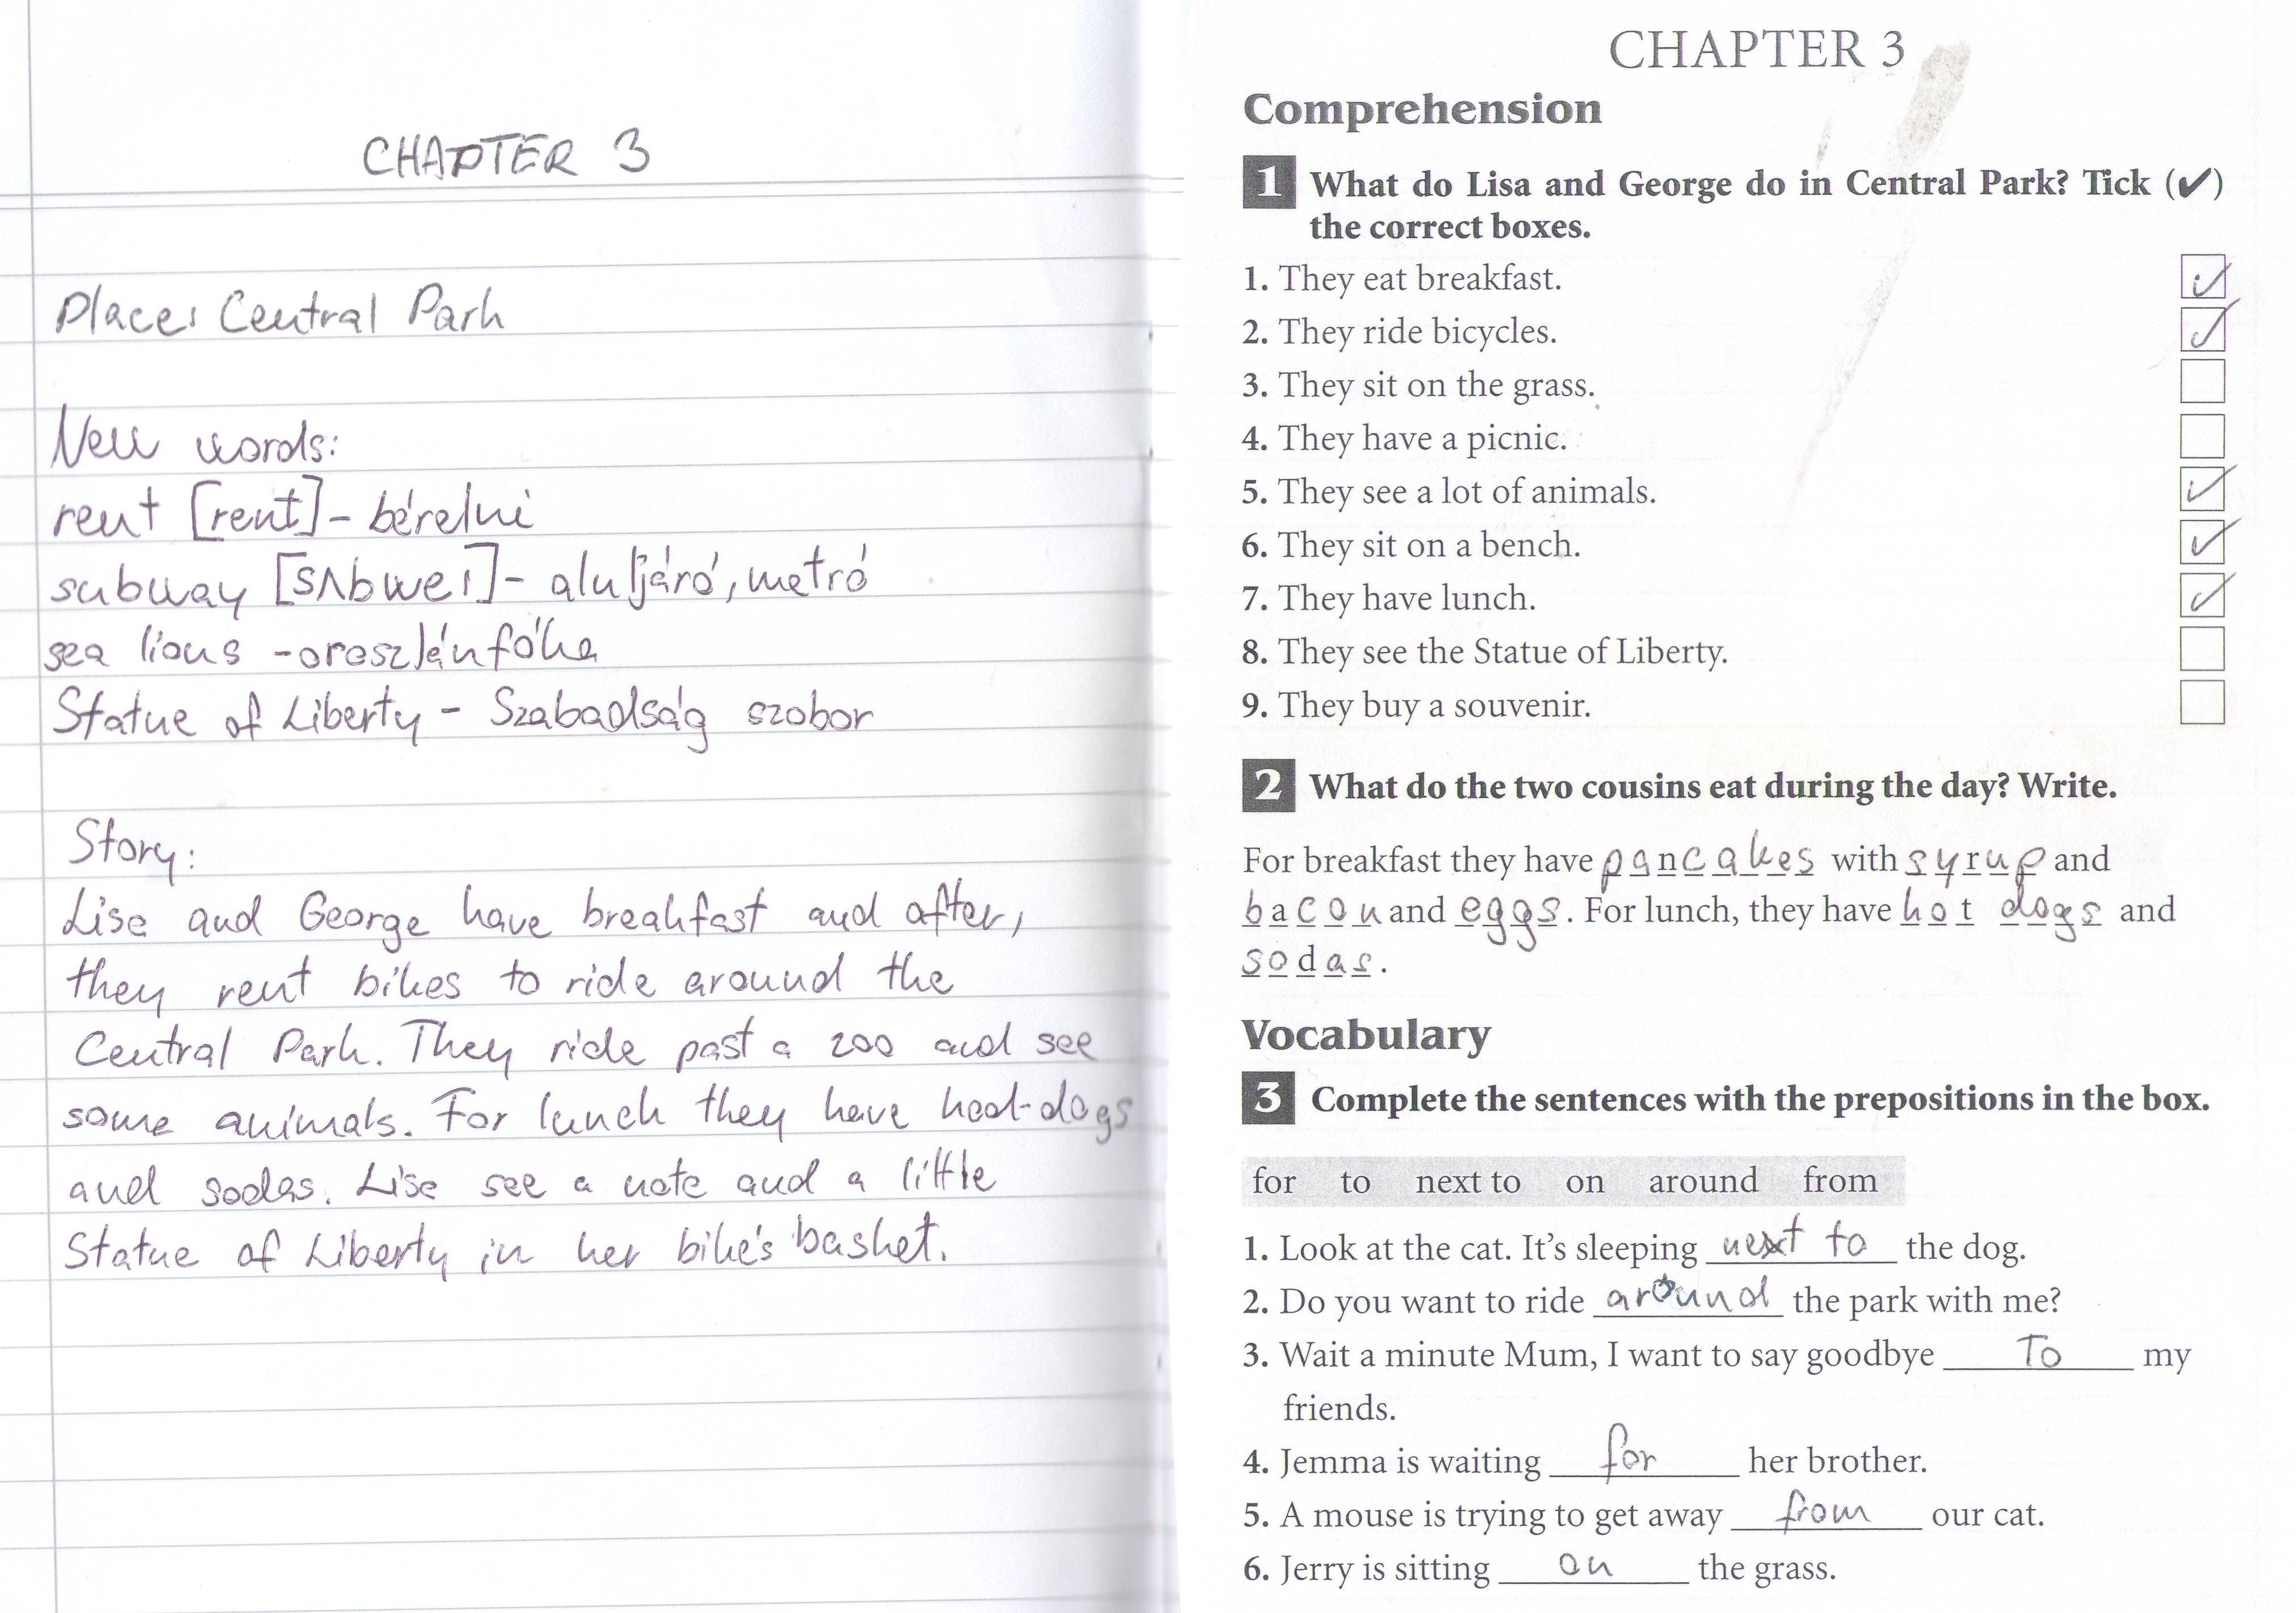 CHAPTER 3
Place: Central Park
New words:
rent [rent] - bérelni
subway [sʌbwei] - aluljáró, metró
sea lions - oroszlánfóka
Statue of Liberty - Szabadság szobor
Story:
Lisa and George have breakfast and after,
they rent bikes to ride around the
Central Park. They ride past a zoo and see
some animals. For lunch they have hoot-dogs
and sodas. Lisa see a note and a little
Statue of Liberty in her bike's basket.
CHAPTER 3
Comprehension
1 What do Lisa and George do in Central Park? Tick (✔)
the correct boxes.
1. They eat breakfast. ✓
2. They ride bicycles. ✓
3. They sit on the grass.
4. They have a picnic.
5. They see a lot of animals. ✓
6. They sit on a bench. ✓
7. They have lunch. ✓
8. They see the Statue of Liberty.
9. They buy a souvenir.
2 What do the two cousins eat during the day? Write.
For breakfast they have pancakes with syrup and
bacon and eggs. For lunch, they have hot dogs and
sodas.
Vocabulary
3 Complete the sentences with the prepositions in the box.
for to next to on around from
1. Look at the cat. It's sleeping next to the dog.
2. Do you want to ride around the park with me?
3. Wait a minute Mum, I want to say goodbye To my
friends.
4. Jemma is waiting for her brother.
5. A mouse is trying to get away from our cat.
6. Jerry is sitting on the grass.